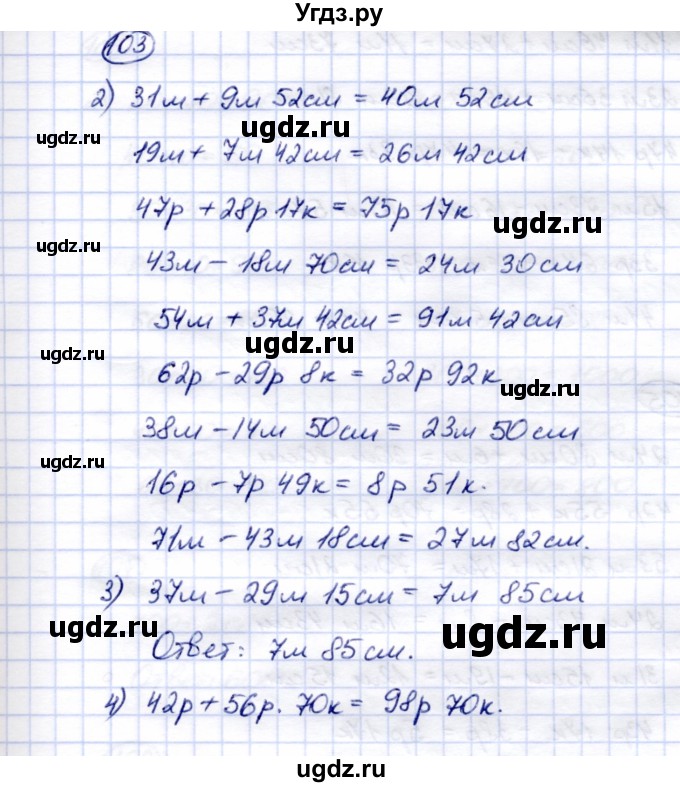 Угдз.ру
103
2) 31м + 9м 52см = 40м 52см
19м + 7м 42см = 26м 42см
47р + 28р 17к = 75р 17к
43м – 18м 70см = 24м 30см
54м + 37м 42см = 91м 42см
62р – 29р 8к = 32р 92к
38м – 14м 50см = 23м 50см
16р – 7р 49к = 8р 51к.
71м – 43м 18см = 27м 82см.
3) 37м – 29м 15см = 7м 85см
Ответ: 7м 85см.
4) 42р + 56р. 70к = 98р 70к.
ugdz.ru
ugdz.ru
ugdz.ru
ugdz.ru
ugdz.ru
ugdz.ru
ugdz.ru
ugdz.ru
ugdz.ru
ugdz.ru
ugdz.ru